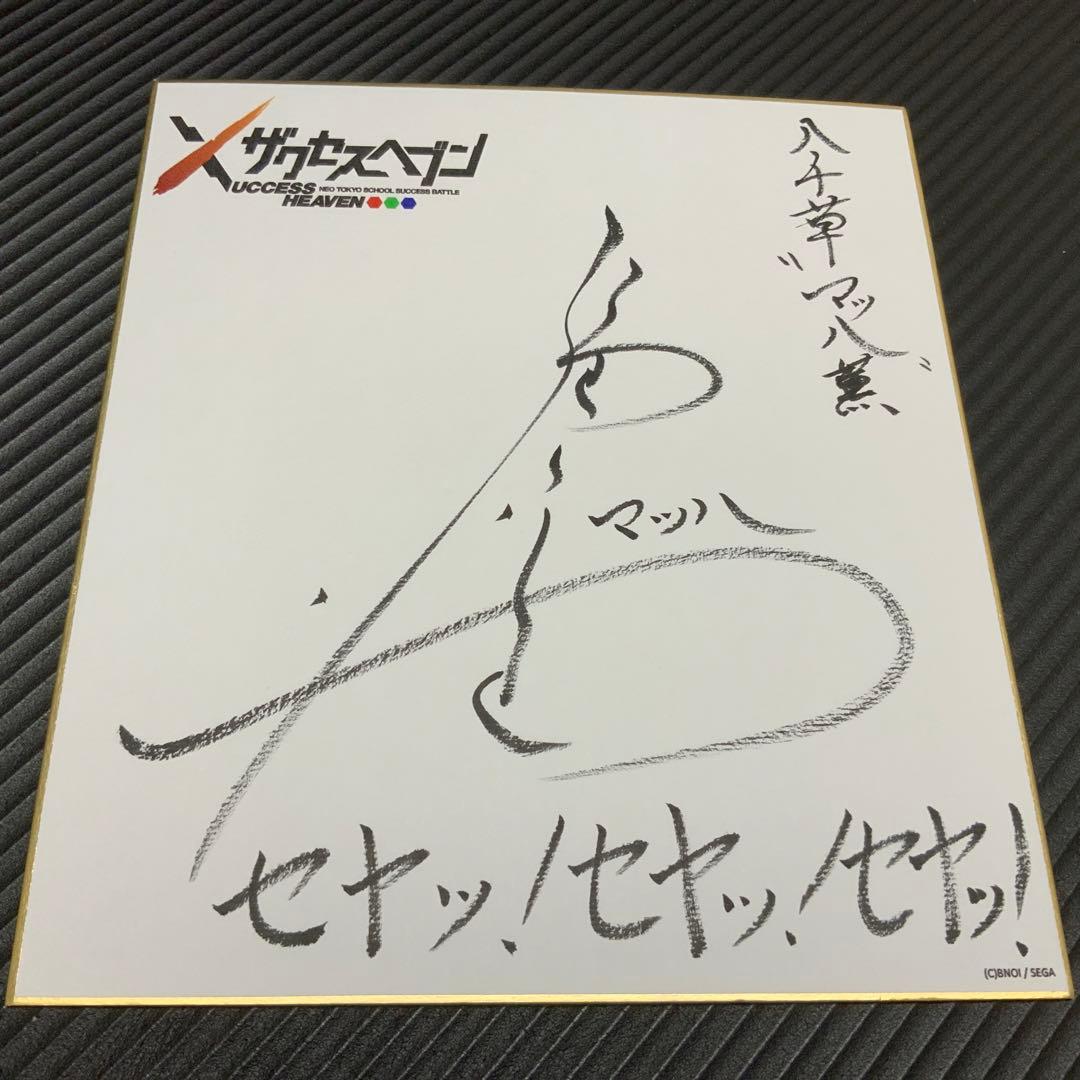 ザクセスヘブン
XUCCESS HEAVEN
NEO TOKYO SCHOOL SUCCESS BATTLE
八千草"マッハ"薫
マッハ
セヤッ!セヤッ!セヤッ!
(C)BNOI / SEGA